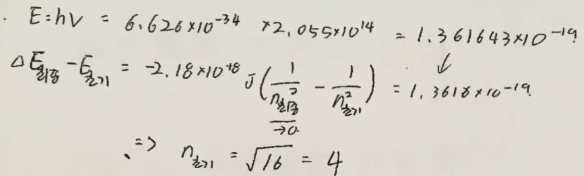 · E=hν = 6.626×10⁻³⁴ ×2.055×10¹⁴ = 1.361643×10⁻¹⁹.
ΔE최종 - E초기 = -2.18×10⁻¹⁸ J(1/n최종² - 1/n초기²) = 1.3616×10⁻¹⁹.
→0
∴ => n초기 = √16 = 4